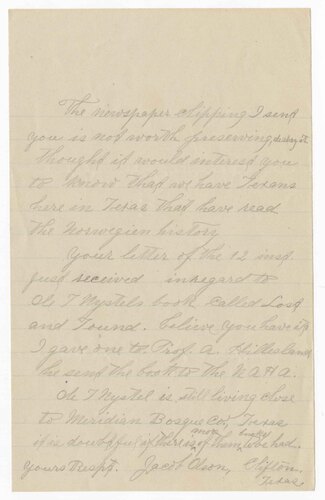 The newspaper clipping I send
you is not worth preserving destroy it
Thought it would interest you
to know that we have Texans
here in Texas that have read
the Norwegien history
Your letter of the 12 inst
just received inregard to
Ole T Nystels book called Lost
and Found. believe you have it
I gave one to Prof. A. Hillesland
he send the book to the NAHA.
Ole T Nystel is still living close
to Meridian Bosque Co, Texas
it is doubtful if theres of them to be had.
yours Respt. Jacob Olson, Clifton,
Texas